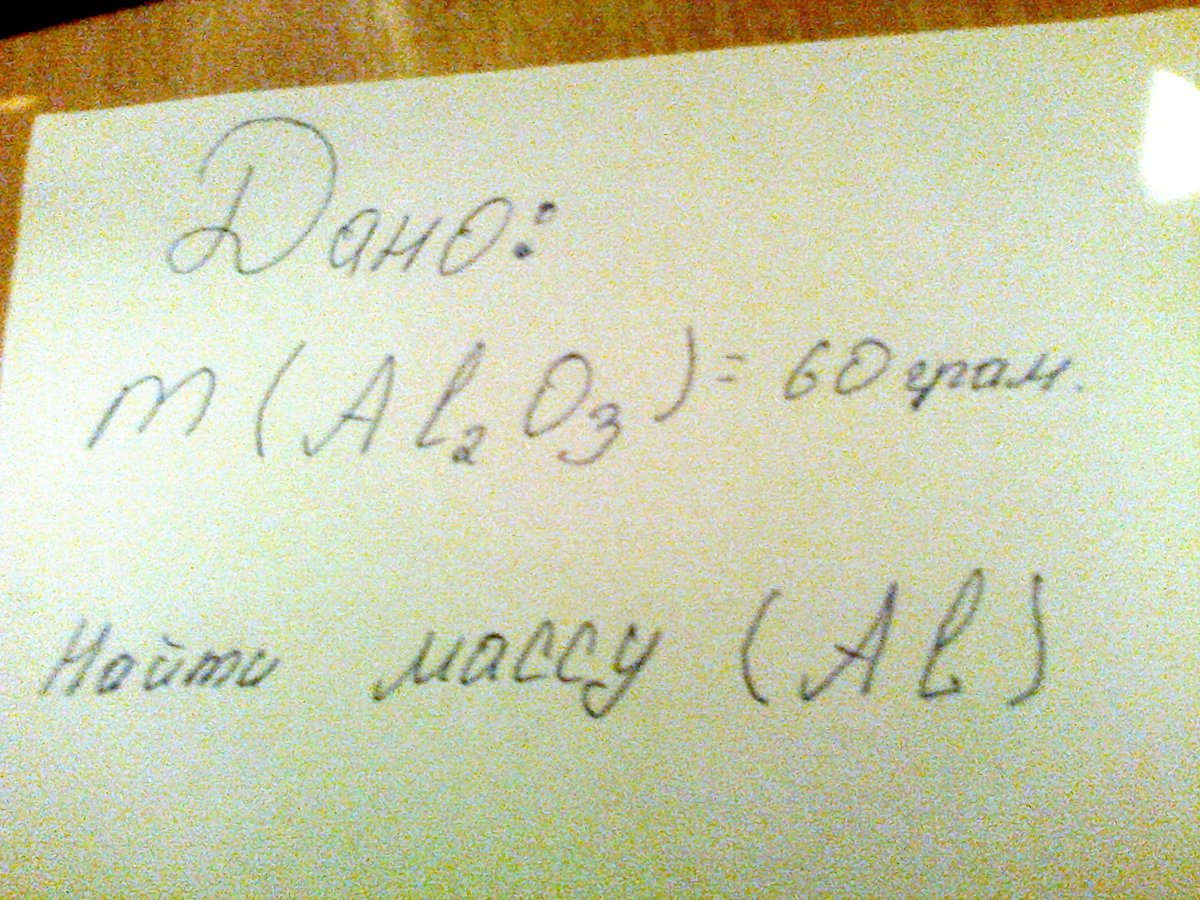 Дано:
m(Al₂O₃)= 60 грам.
Найти массу (Al)